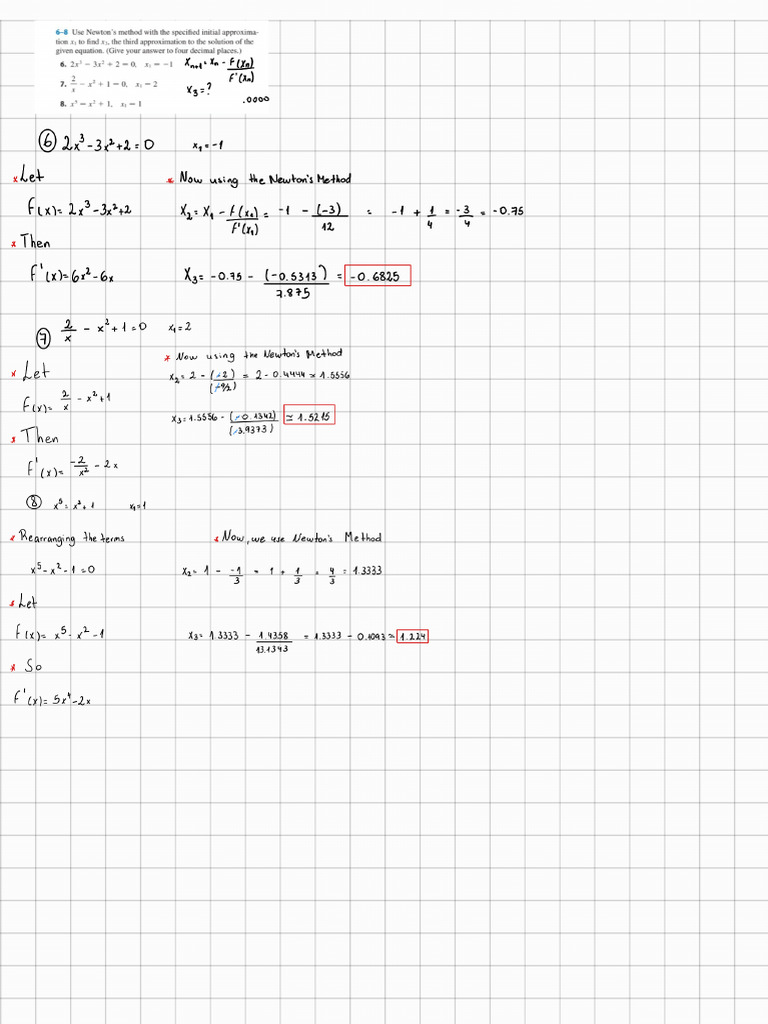 6–8 Use Newton's method with the specified initial approxima-
tion x₁ to find x₃, the third approximation to the solution of the
given equation. (Give your answer to four decimal places.)
6. 2x³ − 3x² + 2 = 0, x₁ = −1
7. 2/x − x² + 1 = 0, x₁ = 2
8. x⁵ = x² + 1, x₁ = 1
Xₙ₊₁ = Xₙ - F(Xₙ)/F'(Xₙ)
X₃ = ?
.0000
⑥ 2x³-3x²+2=0 x₁=-1
* Let
F(x)= 2x³-3x²+2
* Then
F'(x)=6x²-6x
* Now using the Newton's Method
X₂= X₁ - F(x₁)/F'(x₁) = -1 - (-3)/12 = -1 + 1/4 = -3/4 = -0.75
X₃= -0.75 - (-0.5313)/7.875 = -0.6825
⑦ 2/x - x²+1=0 x₁=2
* Let
F(x)= 2/x - x²+1
* Then
F'(x)= -2/x² - 2x
* Now using the Newton's Method
x₂= 2 - (-2)/(-9/2) = 2-0.4444 ≈ 1.5556
x₃= 1.5556 - (-0.1342)/(-3.9373) ≈ 1.5215
⑧ x⁵= x²+1 x₁=1
* Rearranging the terms
x⁵-x²-1=0
* Let
F(x)= x⁵-x²-1
* So
F'(x)= 5x⁴-2x
* Now, we use Newton's Method
x₂= 1 - -1/3 = 1 + 1/3 = 4/3 = 1.3333
x₃= 1.3333 - 1.4358/13.1343 = 1.3333 - 0.1093 ≈ 1.224